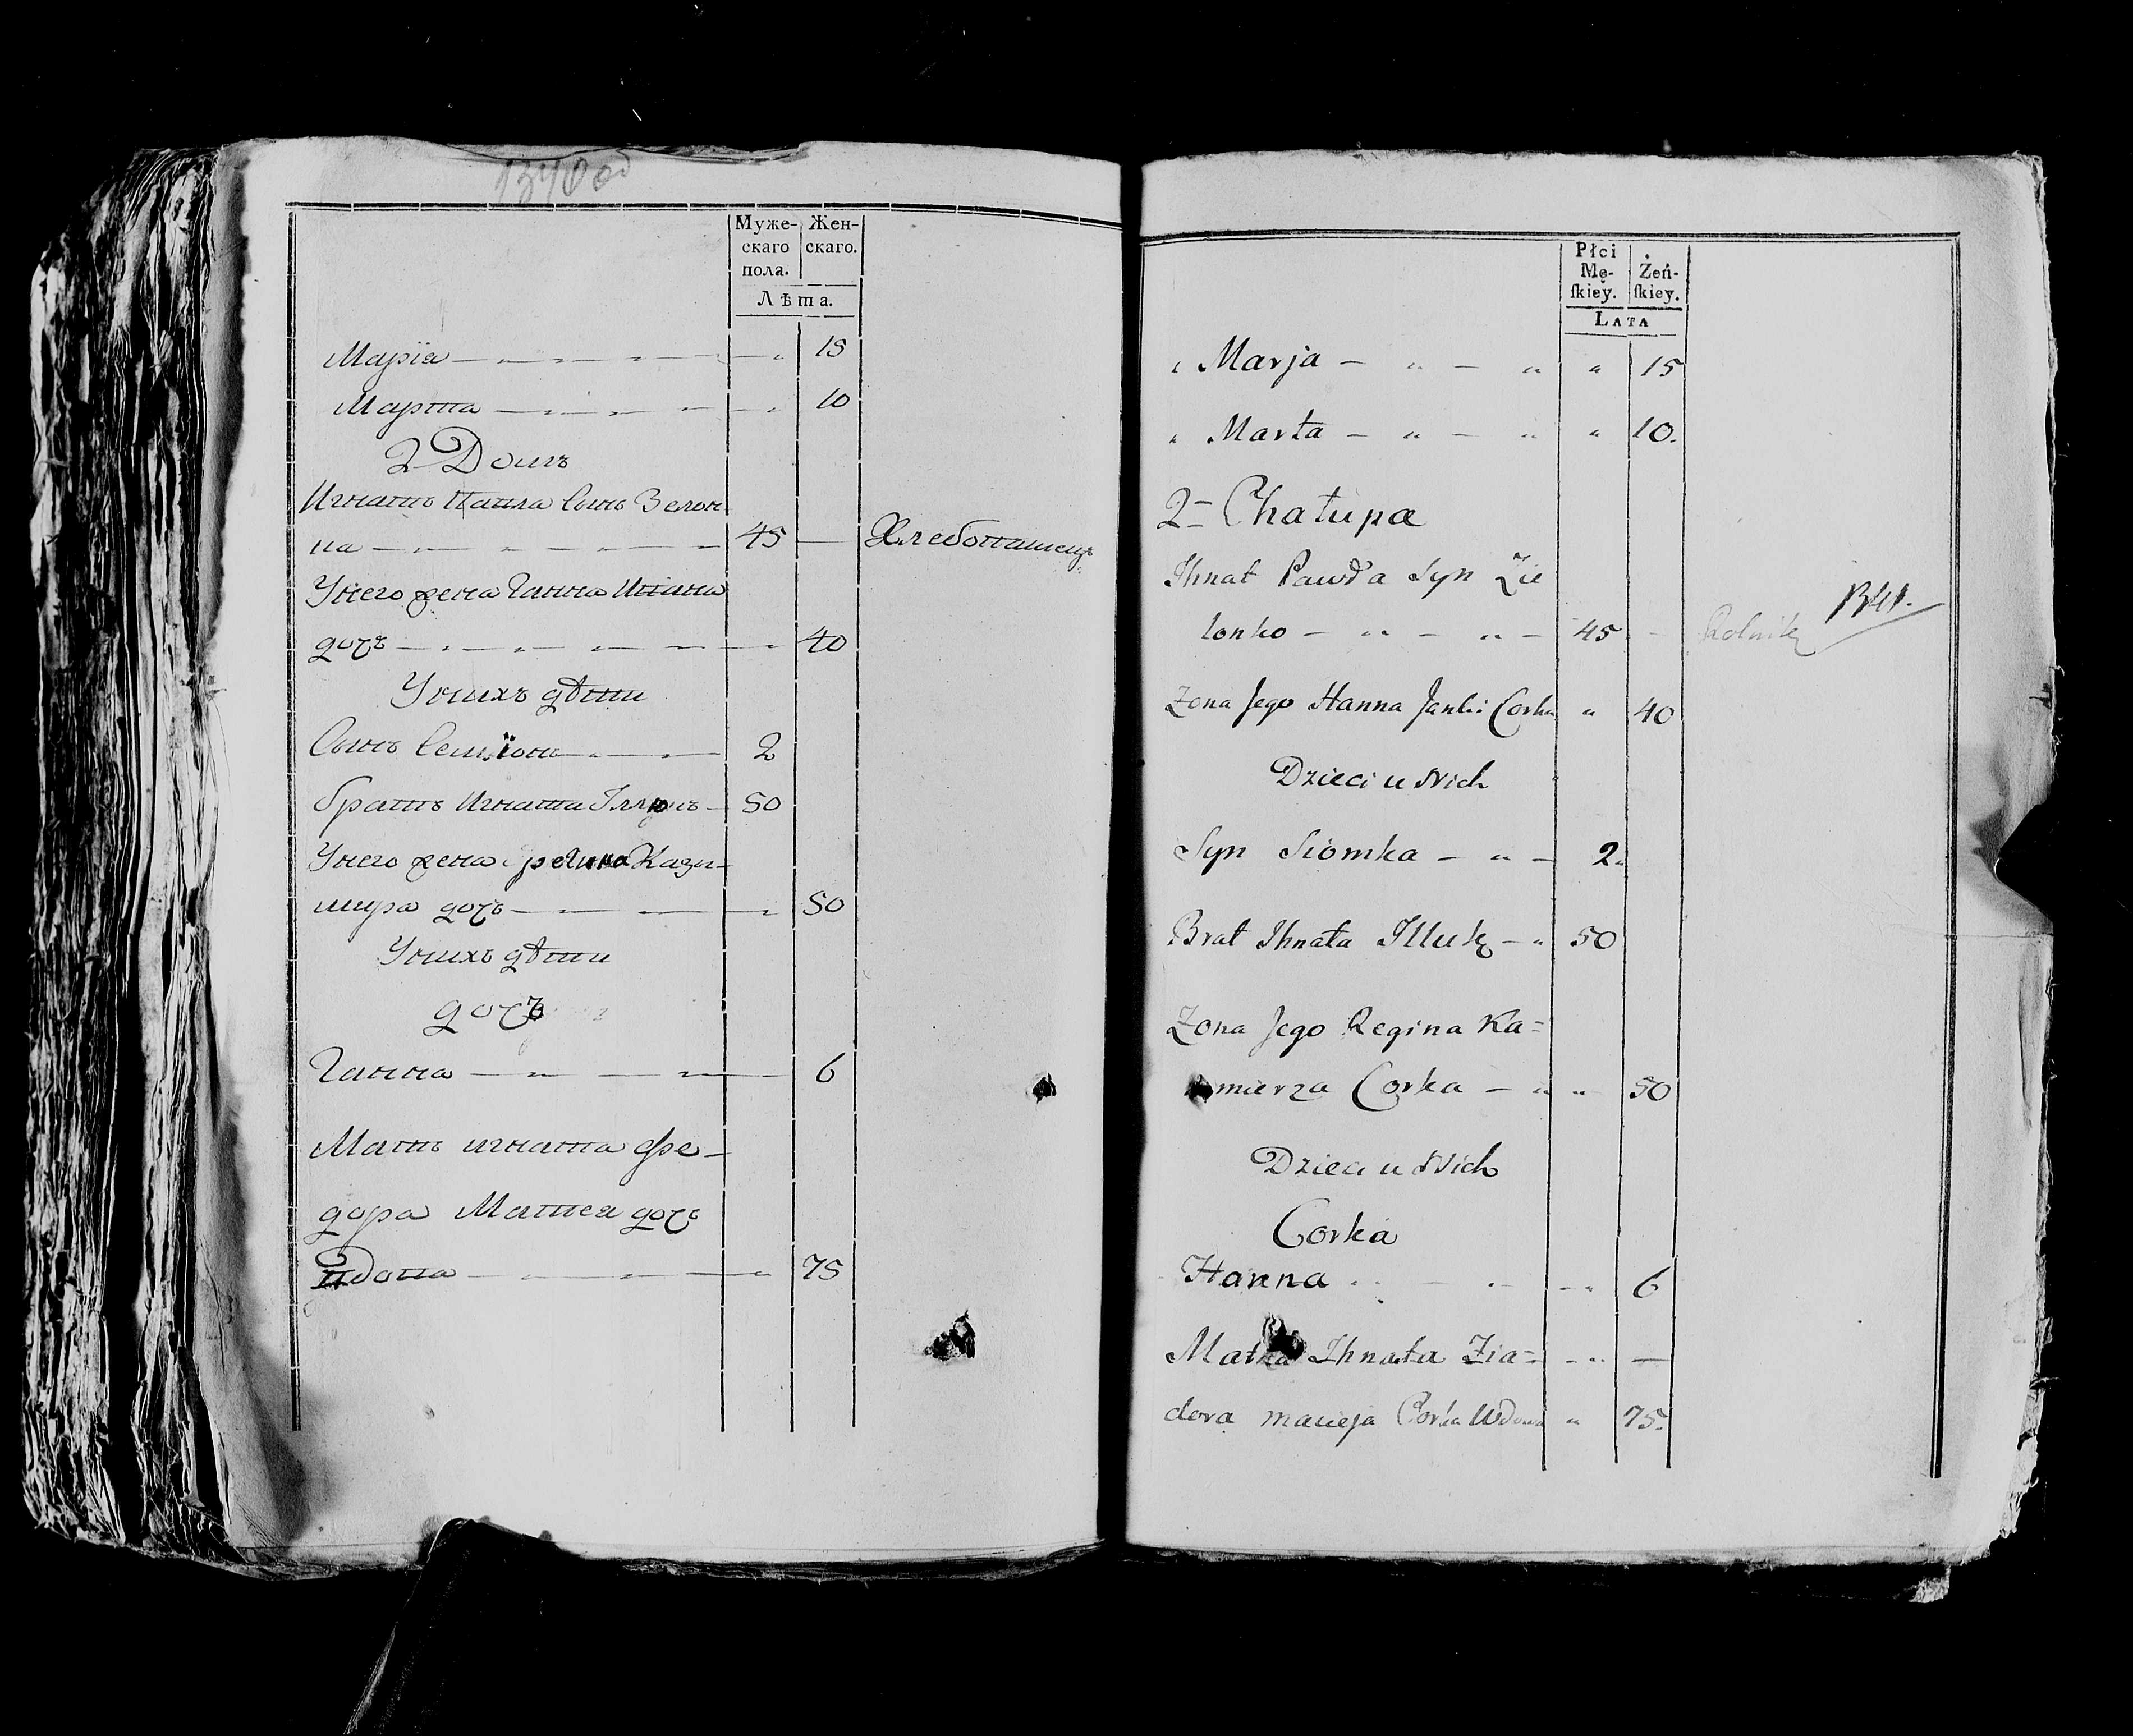 1340 об
Муже-
скаго
пола.
Жен-
скаго.
Лѣта.
Марїа — „ — „ — „ — „ 15
Марта — „ — „ — „ 10
2 Домъ
Игнатъ Павла Сынъ Зелон
ка — „ — „ — „ — 45 — Хлебопашецъ
Унего жена Ганна Ивана
дочь — „ — „ — „ — „ 40
Унихъ дѣти
Сынъ Семїонъ — „ — 2
братъ Игната Іллюкъ — 50
Унего жена Регина Кази-
мира дочь — „ — „ 50
Унихъ дѣти
дочь
Ганна — „ — „ — 6
Мать игната Фе-
дора Матвея дочь
вдова — „ — „ — „ 75
Płci
Mę-
ſkiey.
Żeń-
ſkiey.
LATA
„ Marja — „ — „ „ 15
„ Marta — „ — „ „ 10.
2= Chałupa
Ihnat Pawła Syn Zie
lonko — „ — „ — 45 — Rolnik
1341.
Zona Jego Hanna Janki Corka „ 40
Dzieci u Nich
Syn Siomka — „ — 2.
Brat Ihnata Illuk — „ 50
Zona Jego Regina Ka=
mierza Corka — „ „ 50
Dzieci u Nich
Corka
Hanna „ — „ „ 6
Matka Ihnata Zia= „ —
dora macieja Corka Wdowa „ 75.